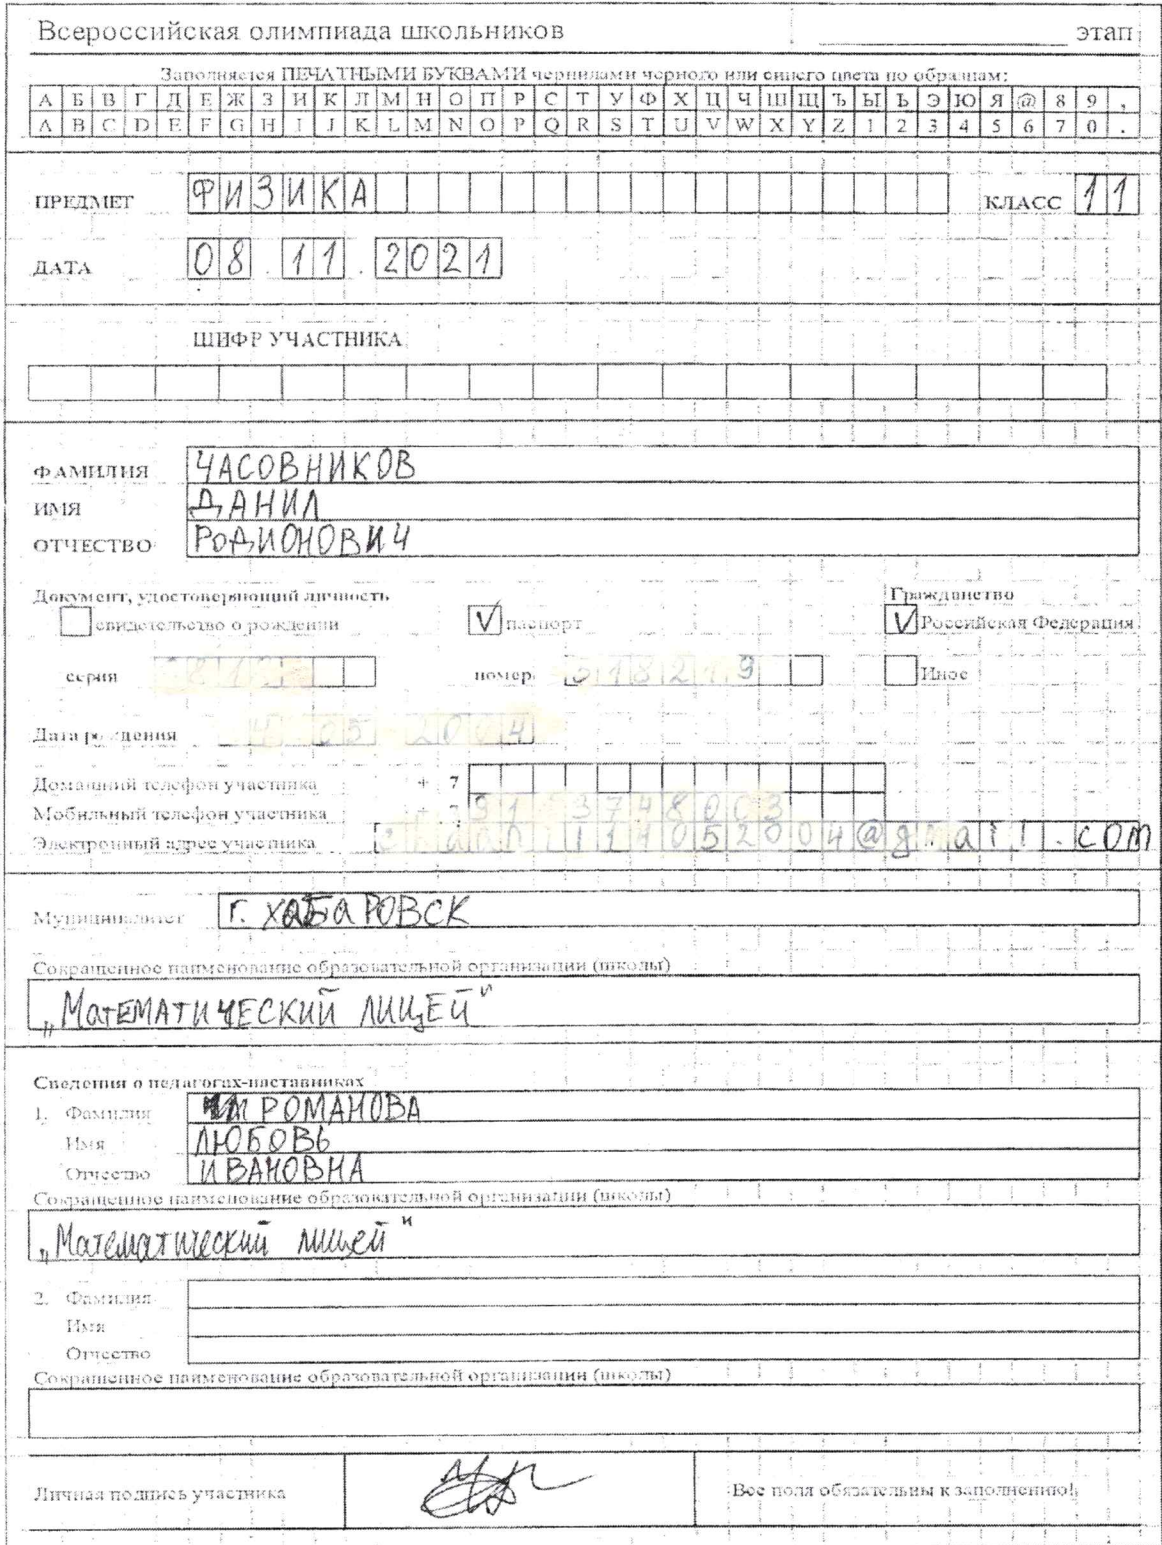 Всероссийская олимпиада школьников этап
Заполняется ПЕЧАТНЫМИ БУКВАМИ чернилами черного или синего цвета по образцам:
А Б В Г Д Е Ж З И К Л М Н О П Р С Т У Ф Х Ц Ч Ш Щ Ъ Ы Ь Э Ю Я @ 8 9 ,
A B C D E F G H I J K L M N O P Q R S T U V W X Y Z 1 2 3 4 5 6 7 0 .
ПРЕДМЕТ ФИЗИКА КЛАСС 11
ДАТА 08 . 11 . 2021
ШИФР УЧАСТНИКА
ФАМИЛИЯ ЧАСОВНИКОВ
ИМЯ ДАНИЛ
ОТЧЕСТВО РОДИОНОВИЧ
Документ, удостоверяющий личность Гражданство
свидетельство о рождении V паспорт V Российская Федерация
серия номер Иное
Дата рождения
Домашний телефон участника + 7
Мобильный телефон участника
Электронный адрес участника
Муниципалитет г. ХАБАРОВСК
Сокращенное наименование образовательной организации (школы)
„МАТЕМАТИЧЕСКИЙ ЛИЦЕЙ"
Сведения о педагогах-наставниках
1. Фамилия РОМАНОВА
Имя ЛЮБОВЬ
Отчество ИВАНОВНА
Сокращенное наименование образовательной организации (школы)
„Математический лицей"
2. Фамилия
Имя
Отчество
Сокращенное наименование образовательной организации (школы)
Личная подпись участника Все поля обязательны к заполнению!